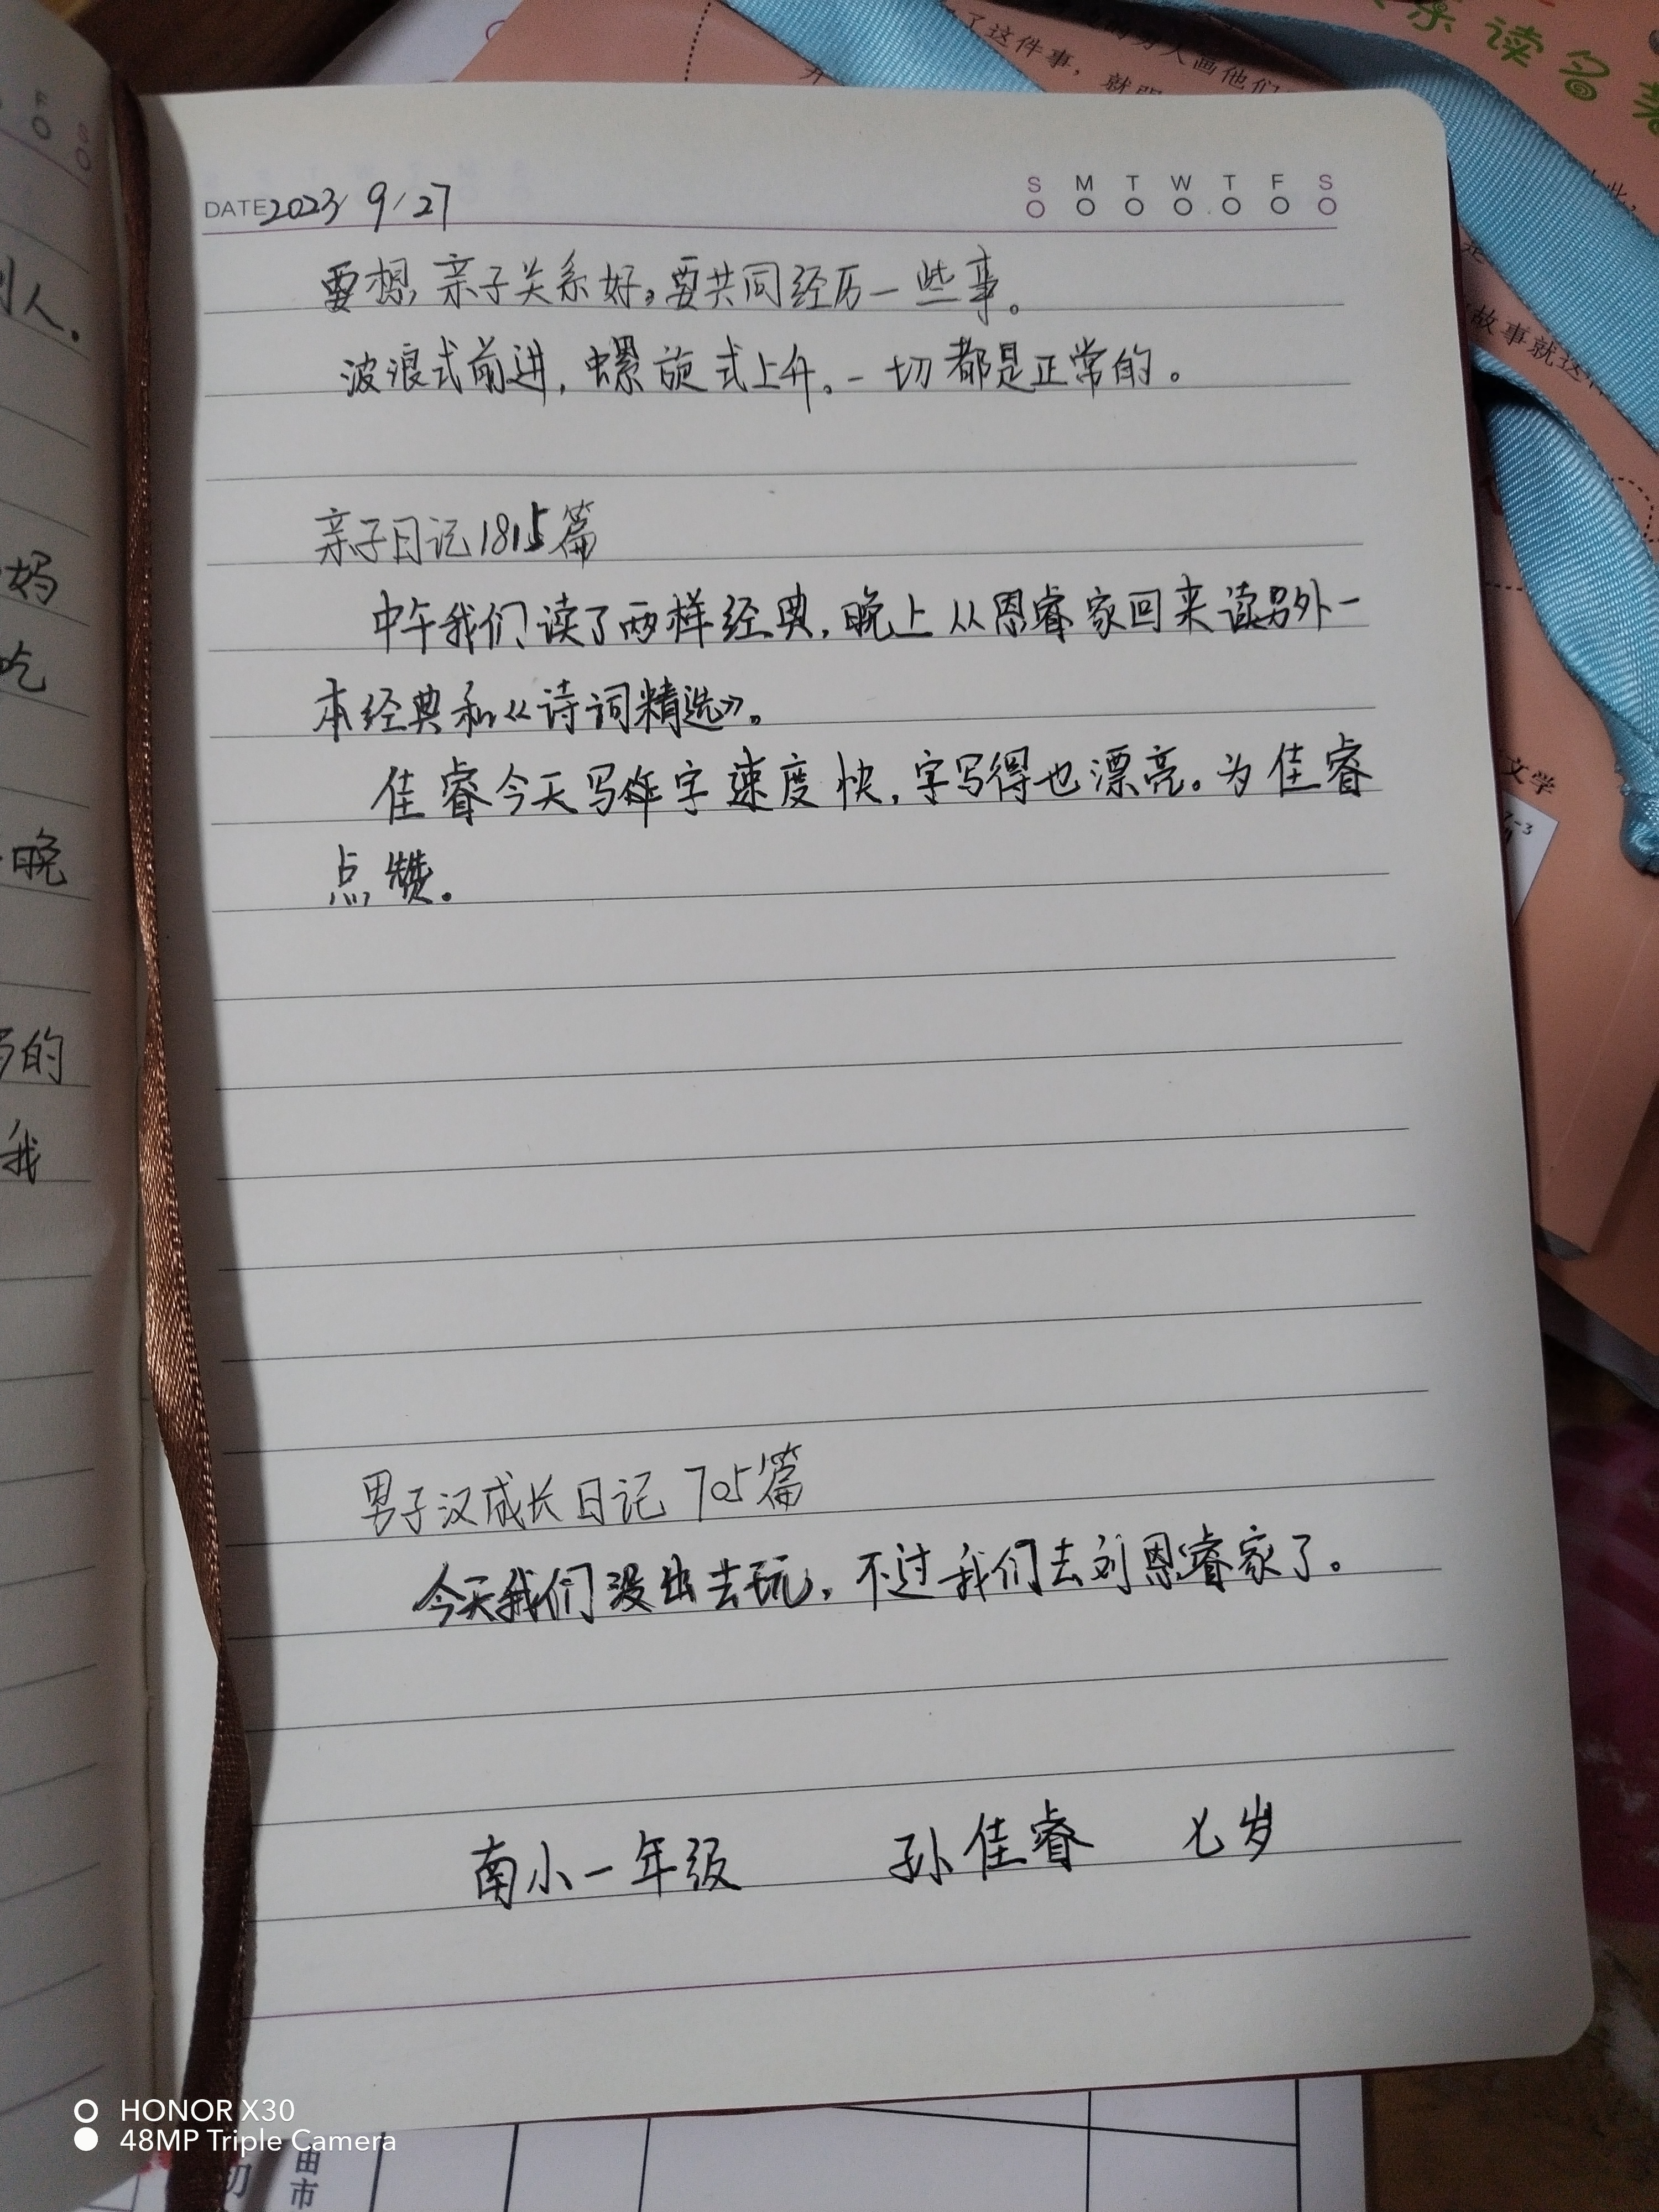 DATE 2023/9/27
S M T W T F S
要想亲子关系好,要共同经历一些事。
波浪式前进,螺旋式上升。一切都是正常的。
亲子日记1815篇
中午我们读了两样经典,晚上从恩睿家回来读另外一
本经典和《诗词精选》。
佳睿今天写作字速度快,字写得也漂亮。为佳睿
点赞。
男子汉成长日记 705篇
今天我们没出去玩,不过我们去刘恩睿家了。
南小一年级 孙佳睿 七岁
别人。
妈
吃
晚
的
我
读名著
了这件事,就
人画他们
故事就这
文学
HONOR X30
48MP Triple Camera
由
市